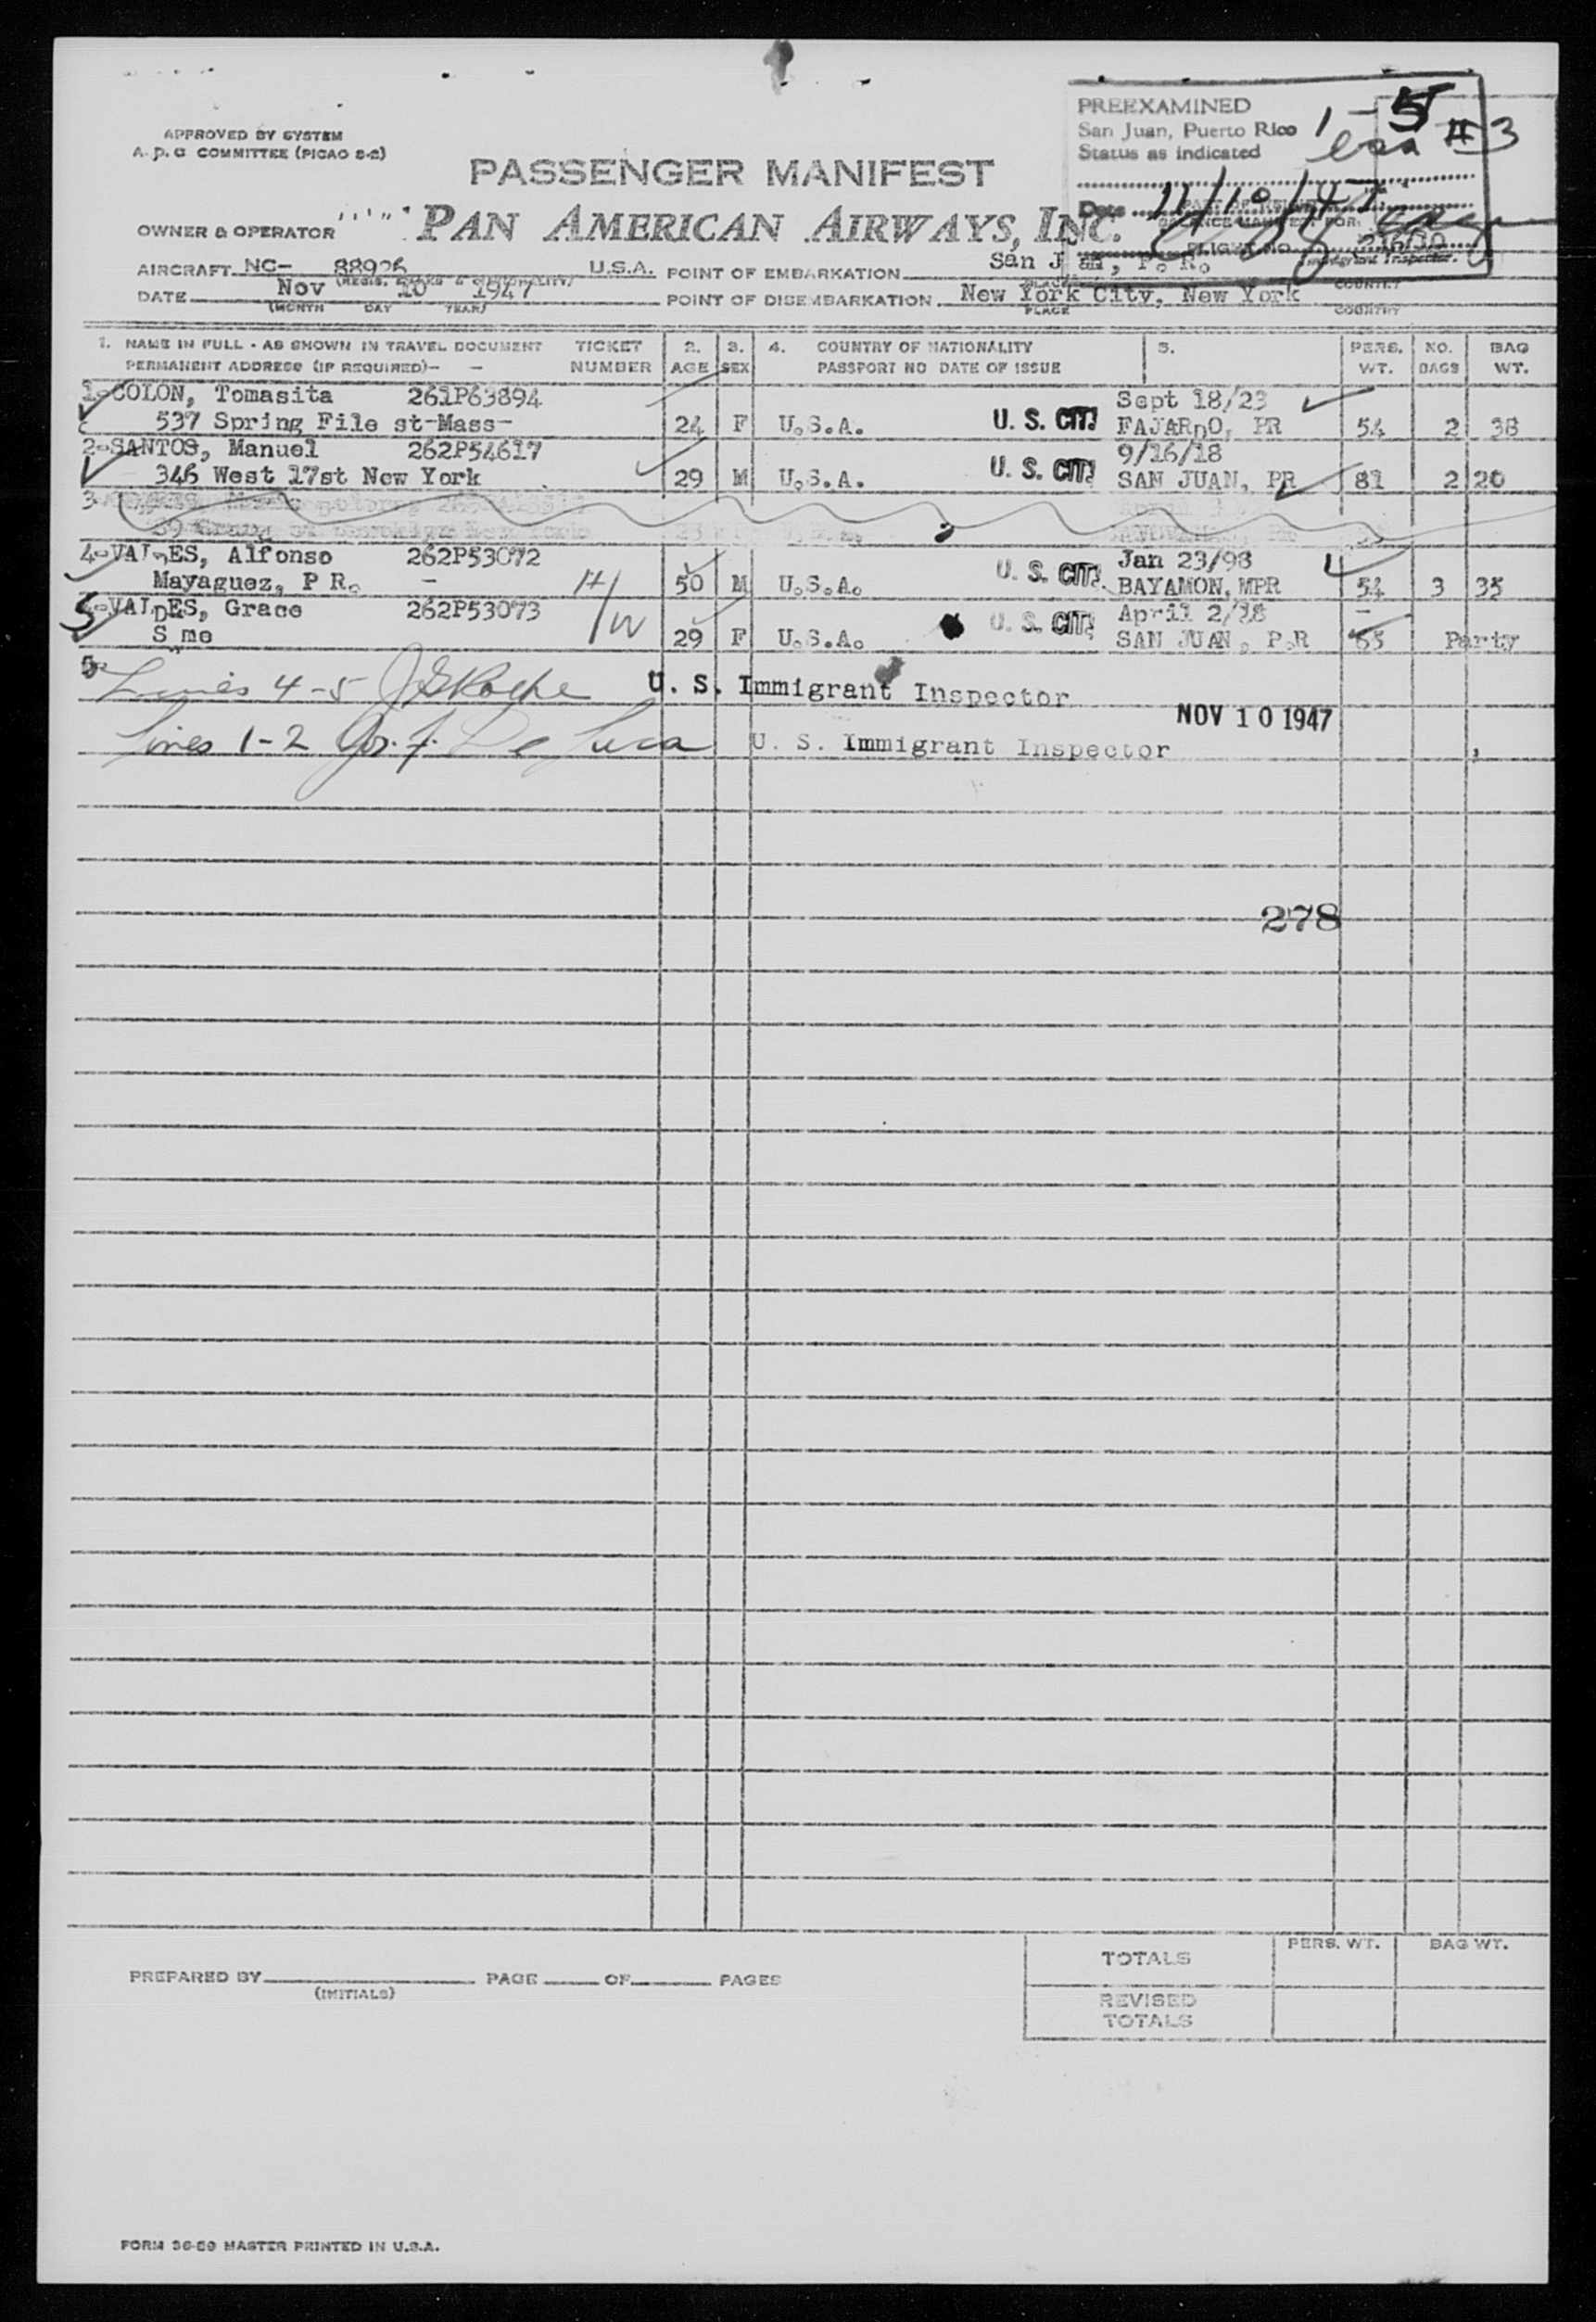 PREEXAMINED
San Juan, Puerto Rico 1-5
Status as indicated #3
APPROVED BY SYSTEM
A. P. C COMMITTEE (PICAO 8-2)
PASSENGER MANIFEST
Date 11/10/47
OWNER & OPERATOR PAN AMERICAN AIRWAYS, INC.
FLIGHT NO. 216/10
Immigrant Inspector.
AIRCRAFT NC- 88926 U.S.A. POINT OF EMBARKATION San J an, P. R.
PLACE COUNTRY
DATE Nov 10 1947 POINT OF DISEMBARKATION New York City, New York
(MONTH DAY YEAR) PLACE COUNTRY
1. NAME IN FULL - AS SHOWN IN TRAVEL DOCUMENT TICKET 2. 3. 4. COUNTRY OF NATIONALITY 5. PERS. NO. BAG
PERMANENT ADDRESS (IF REQUIRED)- - NUMBER AGE SEX PASSPORT NO DATE OF ISSUE WT. BAGS WT.
1-COLON, Tomasita 261P63894 Sept 18/23
537 Spring File st-Mass- 24 F U.S.A. U. S. CIT. FAJARDO, PR 54 2 38
2-SANTOS, Manuel 262P54617 9/16/18
346 West 17st New York 29 M U.S.A. U. S. CIT. SAN JUAN, PR 81 2 20
3
4-VALDES, Alfonso 262P53072 Jan 23/98
Mayaguez, P R. - H/ 50 M U.S.A. U. S. CIT. BAYAMON, MPR 54 3 35
5-VALDES, Grace 262P53073 April 2/18
S me /W 29 F U.S.A. U. S. CIT. SAN JUAN, P.R 55 Party
Lines 4-5 U. S. Immigrant Inspector
NOV 10 1947
Lines 1-2 De Luca U. S. Immigrant Inspector
278
PERS. WT. BAG WT.
TOTALS
PREPARED BY PAGE OF PAGES
(INITIALS)
REVISED
TOTALS
FORM 36-59 MASTER PRINTED IN U.S.A.